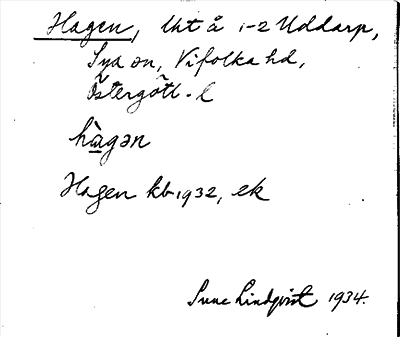 Hagen, Utå 1-2 Uddarp,
Sya sn, Vifolka hd,
Östergötl. l
hàgən
Hagen kb 1932, ek
Sune Lindqvist 1934.